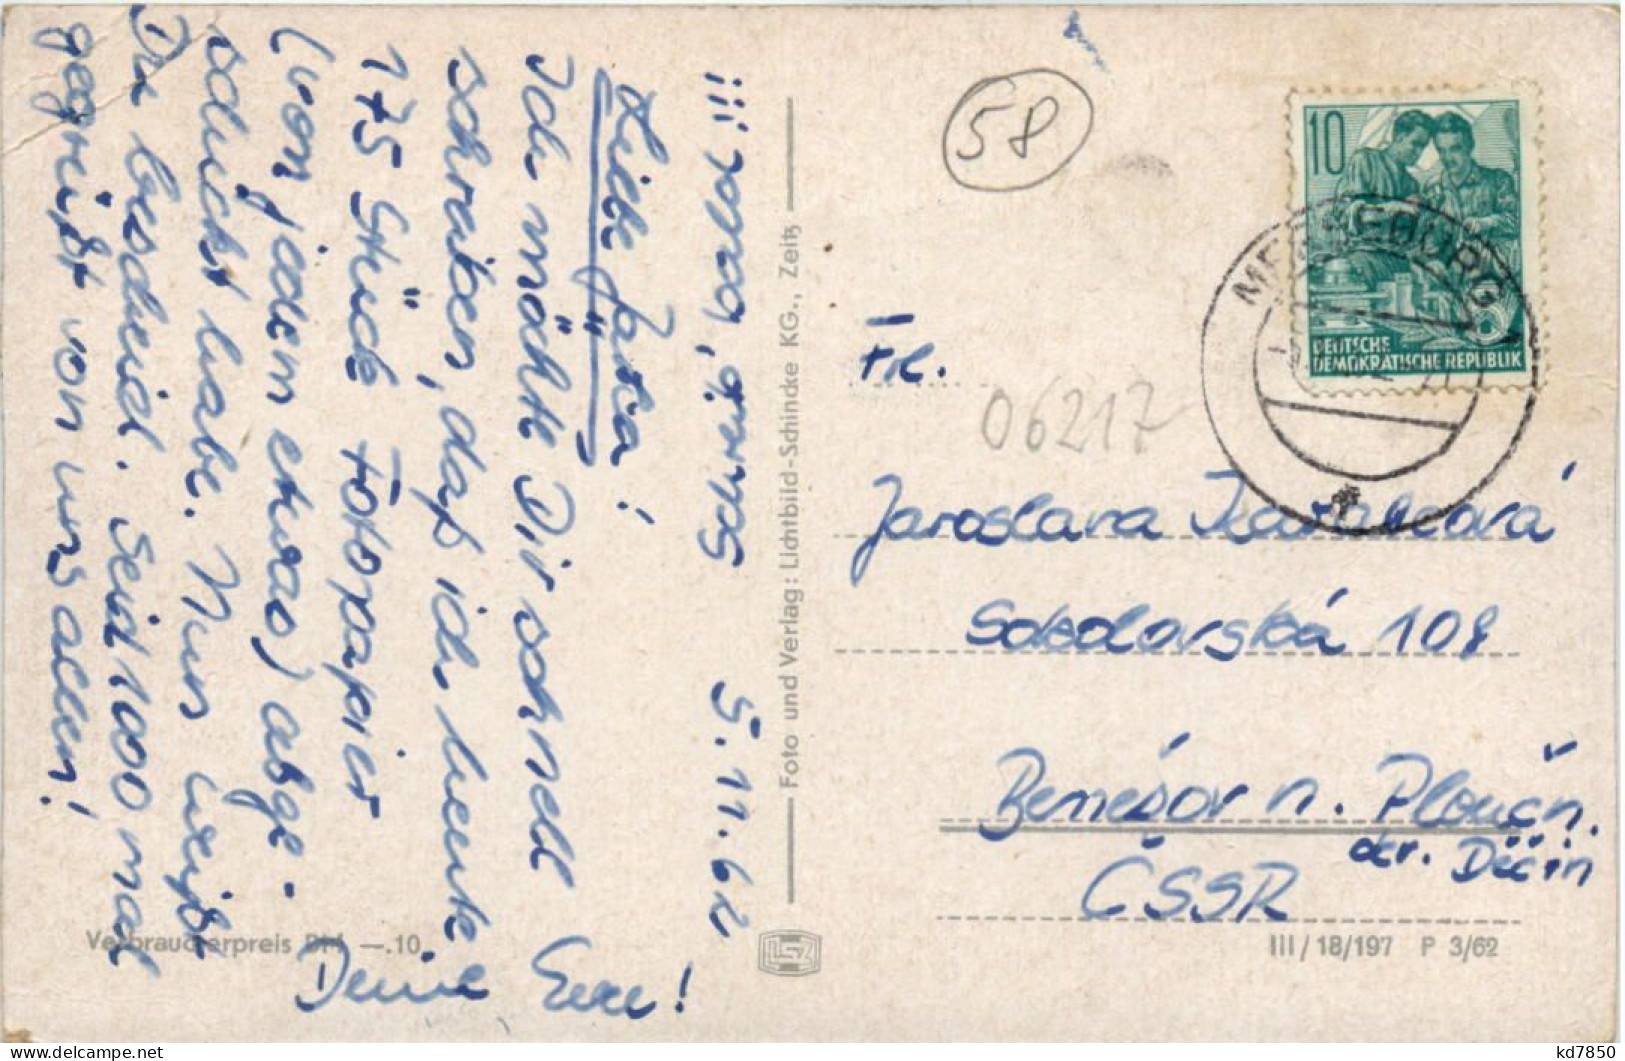 5.11.62
Liebe Jarka!
Ich möchte Dir schnell
schreiben, daß ich heute
175 Stück Fotopapier
(von jedem etwas) abge-
schickt habe. Nun weißt
Du bescheid. Seid 1000 mal
gegrüßt von uns allen!
Deine
!
Foto und Verlag: Lichtbild-Schincke KG., Zeitz
Verbraucherpreis DM —.10
58
10
DEUTSCHE
DEMOKRATISCHE REPUBLIK
MERSEBURG 1
Frl.
06217
Jaroslava
Sokolovská 108
Benešov n. Ploučn.
okr. Děčín
ČSSR
III/18/197 P 3/62
kd7850